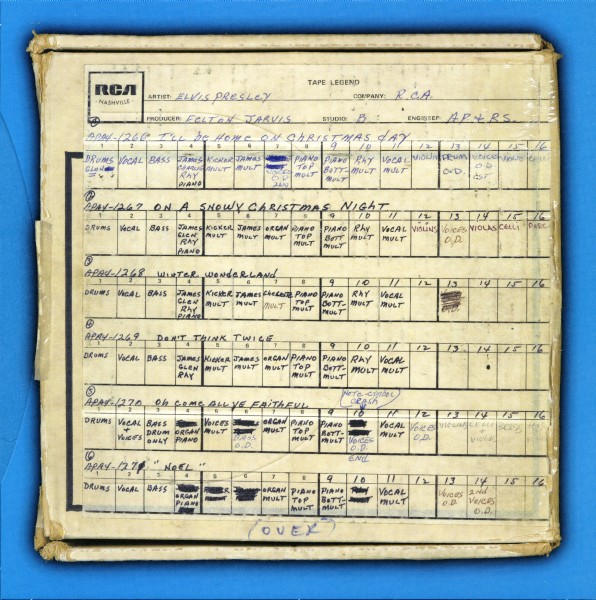 RCA
NASHVILLE
TAPE LEGEND
ARTIST: ELVIS PRESLEY COMPANY: R.C.A.
PRODUCER: FELTON JARVIS STUDIO: B ENGINEER: AP & RS.
APA4-1266 I'LL BE HOME ON CHRISTMAS DAY
1 2 3 4 5 6 7 8 9 10 11 12 13 14 15 16
DRUMS VOCAL BASS JAMES KICKER JAMES PIANO PIANO Rhy VOCAL VIOLINS DRUM VOICES
GLEN MULT MULT VOICES TOP BOTT- MULT MULT O.D. O.D.
RHY O.D. MULT MULT
PIANO
2
APA4-1267 ON A SNOWY CHRISTMAS NIGHT
1 2 3 4 5 6 7 8 9 10 11 12 13 14 15 16
DRUMS VOCAL BASS JAMES KICKER JAMES ORGAN PIANO PIANO Rhy VOCAL VIOLINS VOICES VIOLAS CELLI
GLEN MULT MULT MULT TOP BOTT MULT MULT O.D.
RHY MULT MULT
PIANO
3
APA4-1268 WINTER WONDERLAND
1 2 3 4 5 6 7 8 9 10 11 12 13 14 15 16
DRUMS VOCAL BASS JAMES KICKER JAMES PIANO PIANO Rhy VOCAL
GLEN MULT MULT MULT TOP BOTT- MULT MULT
RHY MULT MULT
PIANO
4
APA4-1269 DON'T THINK TWICE
1 2 3 4 5 6 7 8 9 10 11 12 13 14 15 16
DRUMS VOCAL BASS JAMES KICKER JAMES ORGAN PIANO PIANO RHY VOCAL
GLEN MULT MULT MULT TOP BOTT- MULT MULT
RHY MULT MULT
5
NOTE-CYMBAL
CRASH
APA4-1270 Oh COME ALL YE FAITHFUL
1 2 3 4 5 6 7 8 9 10 11 12 13 14 15 16
DRUMS VOCAL BASS VOICES ORGAN PIANO PIANO VOCAL VOICES
+ DRUM ORGAN MULT MULT TOP BOTT- VOICES MULT O.D.
VOICES ONLY PIANO BASS MULT MULT O.D.
O.D. END
6
APA4-1271 "NOEL"
1 2 3 4 5 6 7 8 9 10 11 12 13 14 15 16
DRUMS VOCAL BASS ORGAN PIANO PIANO VOCAL VOICES 2ND
ORGAN MULT MULT MULT TOP BOTT- MULT MULT O.D. VOICES
PIANO MULT MULT O.D.
(OVER)